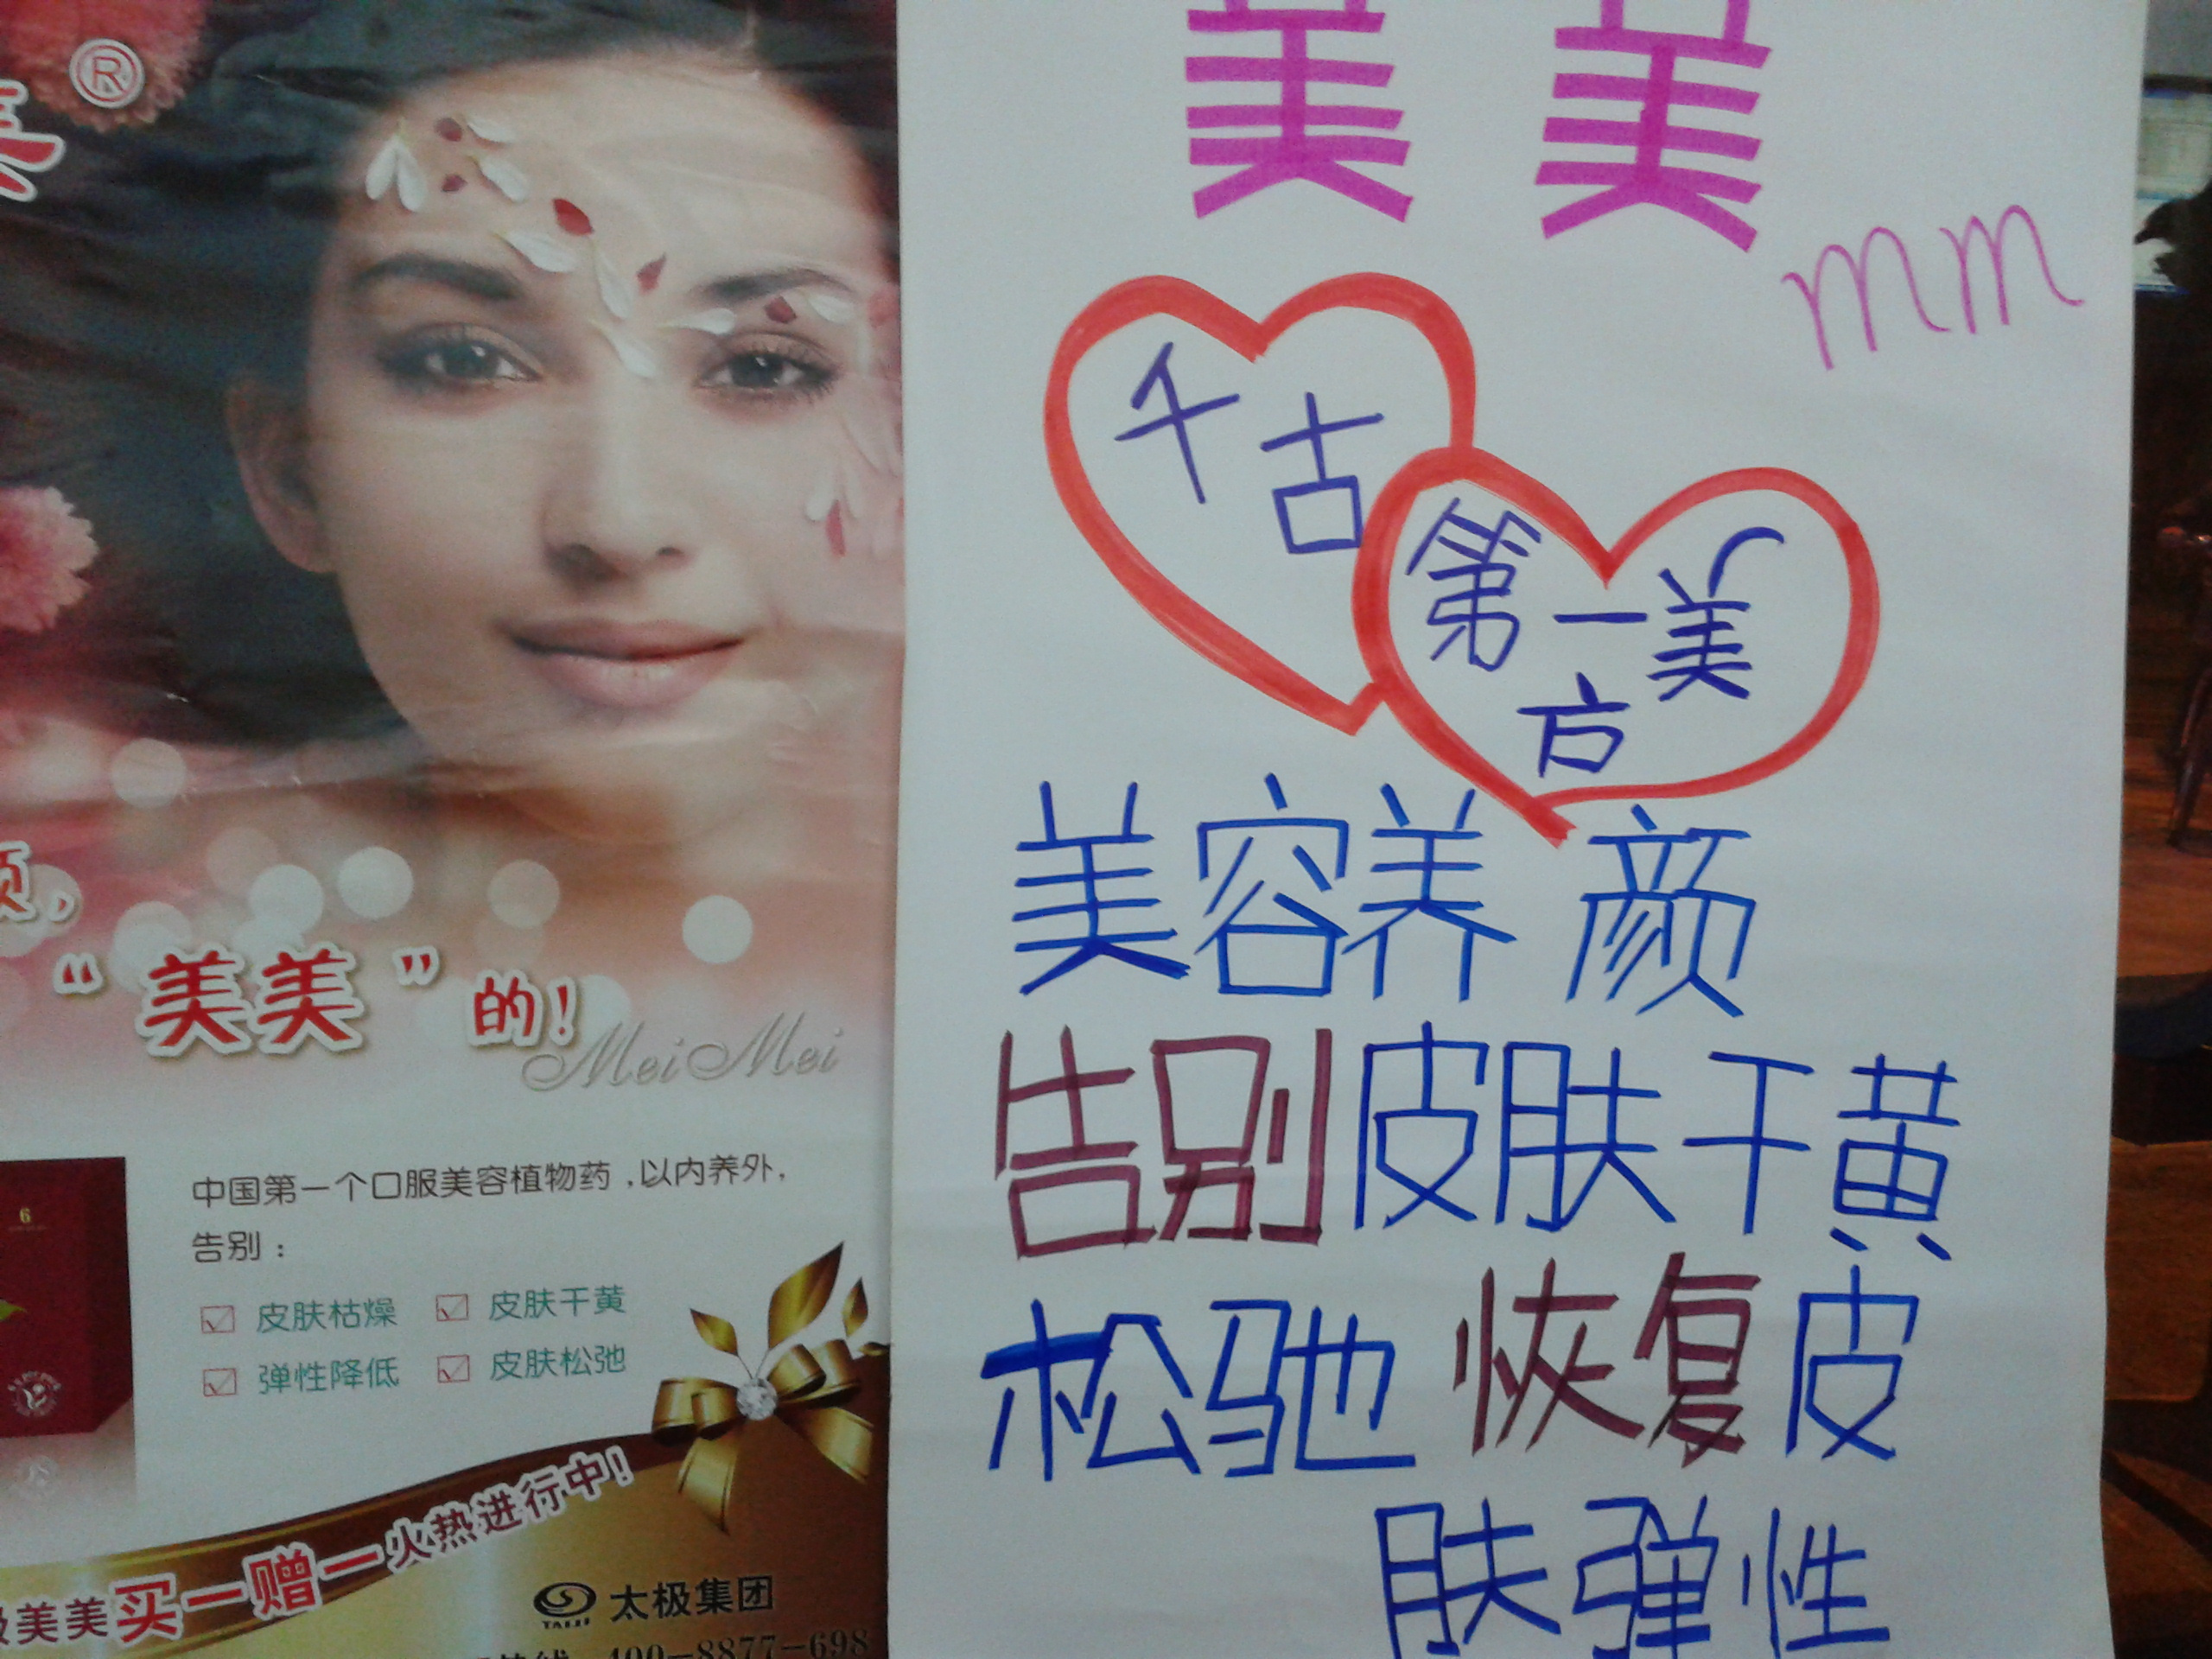 ®
美
颜,
“美美”的!
MeiMei
中国第一个口服美容植物药,以内养外,
告别:
皮肤枯燥 皮肤干黄
弹性降低 皮肤松弛
美美买一赠一火热进行中!
太极集团
TAIJI
400-8877-698
美 美
mm
千古
第一美
方
美容养颜
告别皮肤干黄
松驰 恢复皮
肤弹性